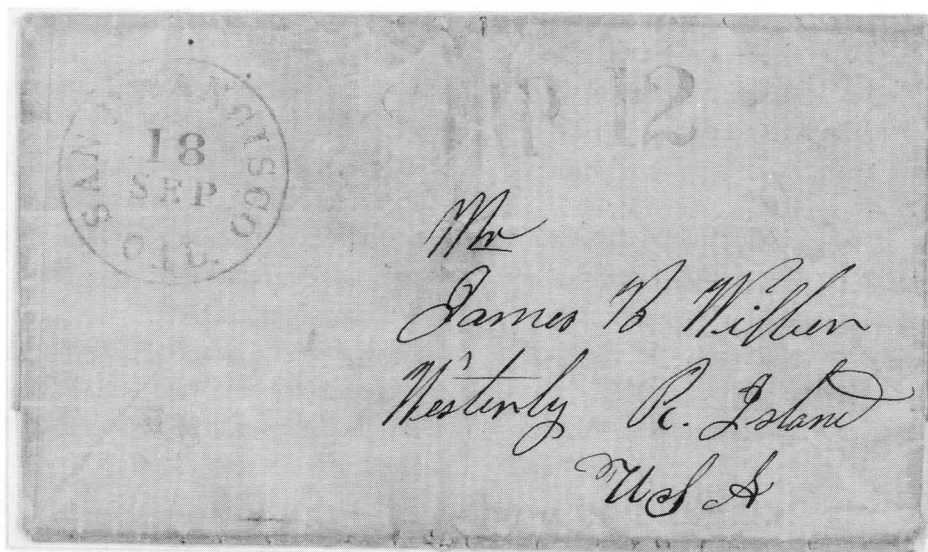 SAN FRANCISCO
18
SEP
CAL.
12
Mr
James B Wilber
Westerly R. Island
U S A